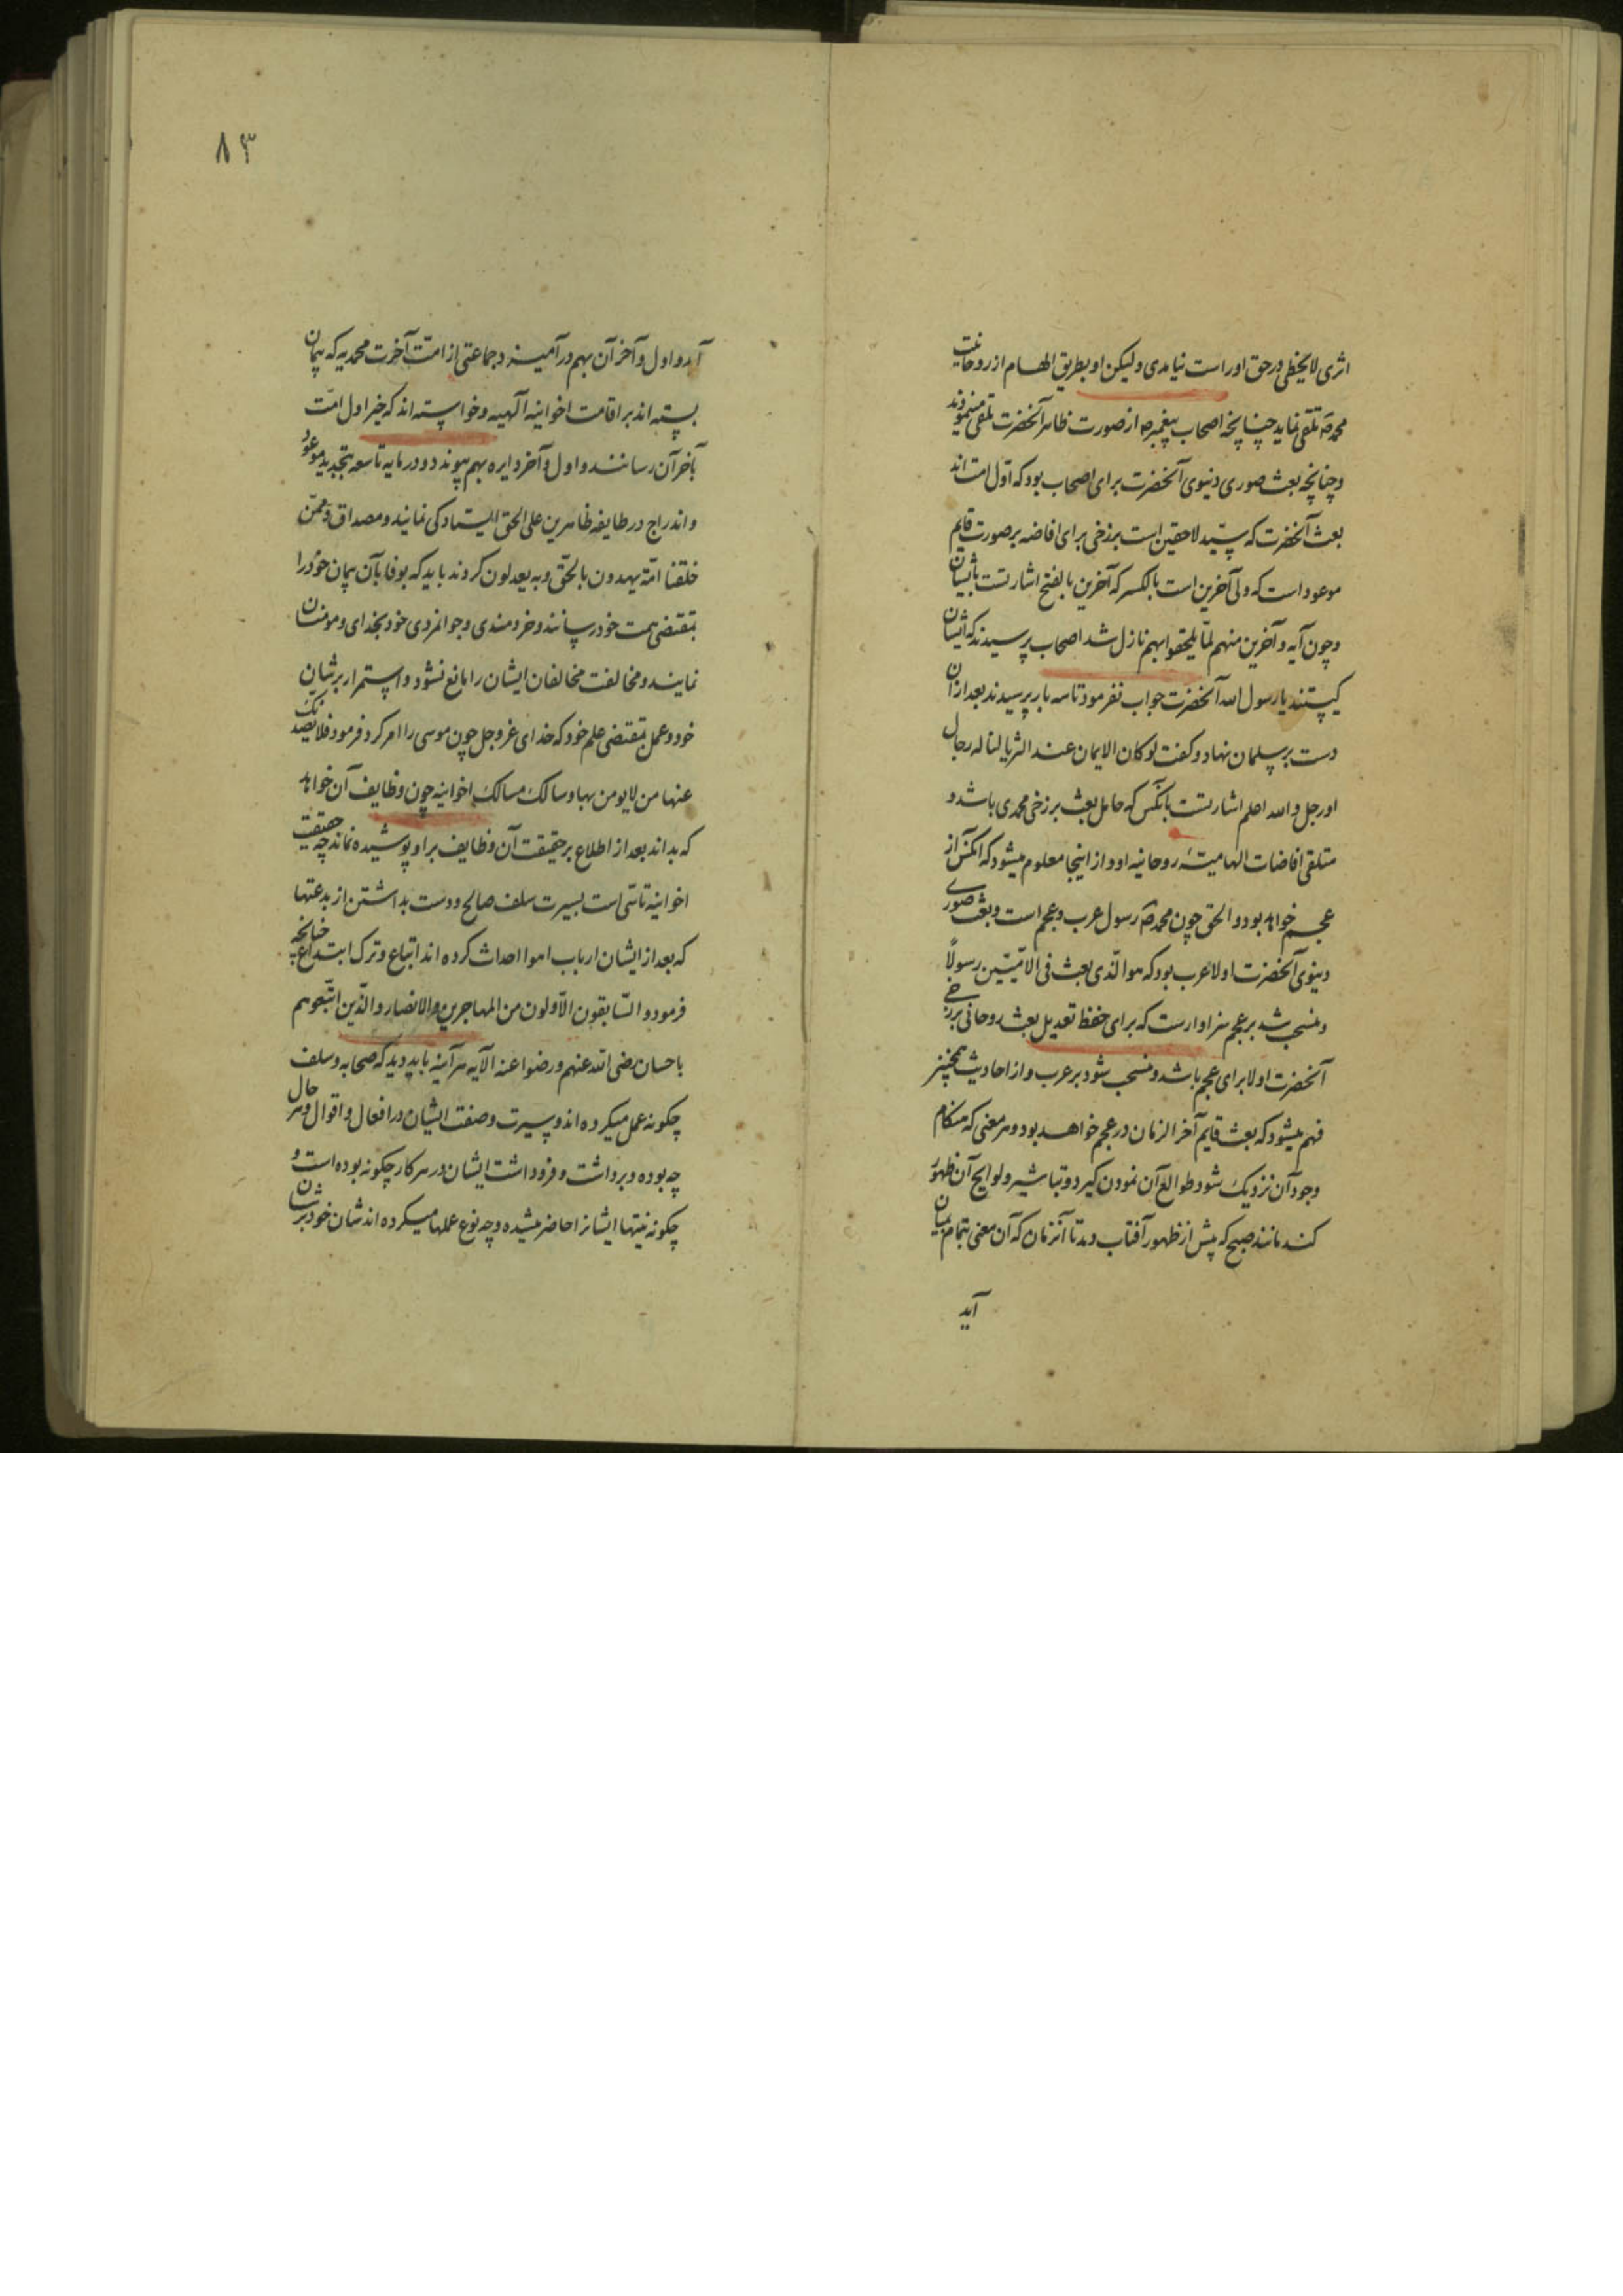 اثری لایخطی در حق اوراست نیامدی ولیکن او بطریق الهام از روحانیت
محمد ص تلقی نماید چنانچه اصحاب پیغمبر ص از صورت ظاهر آنحضرت تلقی مینمودند
و چنانچه بعث صوری دنیوی آنحضرت برای اصحاب بود که اول امت اند
بعث آنحضرت که سید لاحقین است برزخی برای افاضه بر صورت قایم
موعود است که ولی آخرین است بالکسر که آخرین بالفتح اشارتست بایشان
و چون آیه و آخرین منهم لمّا یلحقوا بهم نازل شد اصحاب پرسیدند که ایشان
کیستند یا رسول الله آنحضرت جواب نفرمود تا سه بار پرسیدند بعد از آن
دست بر سلمان نهاد و گفت لو کان الایمان عند الثریا لناله رجال
او رجل و الله اعلم اشارتست بآنکس که حامل بعث برزخی محمدی باشد و
متلقی افاضات الهامیّه روحانیه او و از اینجا معلوم میشود که آنکس از
عجم خواهد بود و الحق چون محمد ص رسول عرب و عجم است و بعث صوری
دنیوی آنحضرت اولا عرب بود که هو الّذی بعث فی الامّیّین رسولاً
و منسحب شد بر عجم سزاوارست که برای حفظ تعدیل بعث روحانی برزخی
آنحضرت اولا برای عجم باشد و منسحب شود بر عرب و از احادیث همچنین
فهم میشود که بعث قایم آخر الزمان در عجم خواهد بود و هر معنی که هنگام
وجود آن نزدیک شود طوالع آن نمودن گیرد و تباشیر و لوایح آن ظهور
کند مانند صبح که پیش از ظهور آفتاب دمد تا آنزمان که آن معنی بتمام بیان
آید
۸۳
آید و اول و آخر آن بهم در آمیزد و جماعتی از امّت آخرت محمدیه که پیمان
بسته اند بر اقامت اخوانیه الهیه و خواسته اند که خیر اول امّت
بآخر آن رسانند و اول و آخر دایره بهم پیوندد و در مایه تاسعه بتجدید موعود
و اندراج در طایفه ظاهرین علی الحق ایستادگی نمایند و مصداق و ممّن
خلقنا امّة یهدون بالحق و به یعدلون گردند باید که بوفا بآن پیمان خود را
بمقتضی همت خود رسانند و خردمندی و جوانمردی خود بخدای و مومنان
نمایند و مخالفت مخالفان ایشان را مانع نشود و استمرار بر شان
خود و عمل بمقتضی علم خود که خدای عز و جل چون موسی را امر کرد فرمود فلا یصدنک
عنها من لا یومن بها و سالک مسالک اخوانیه چون وظایف آن خواهد
که بداند بعد از اطلاع بر حقیقت آن وظایف بر او پوشیده نماند چه حقیقت
اخوانیه تاسّی است بسیرت سلف صالح و دست بداشتن از بدعتها
که بعد از ایشان ارباب اهوا احداث کرده اند اتباع و ترک ابتداع چنانچه
فرمود و السّابقون الاّولون من المهاجرین و الانصار و الّذین اتّبعوهم
باحسان رضی الله عنهم و رضوا عنه الآیه هر آینه باید دید که صحابه و سلف
چگونه عمل میکرده اند و سیرت و صفت ایشان در افعال و اقوال و هر حال
چه بوده و برداشت و فروداشت ایشان در هر کار چگونه بوده است و
چگونه نیتها ایشانرا حاضر میشده و چه نوع عملها میکرده اند شان خود بر شان